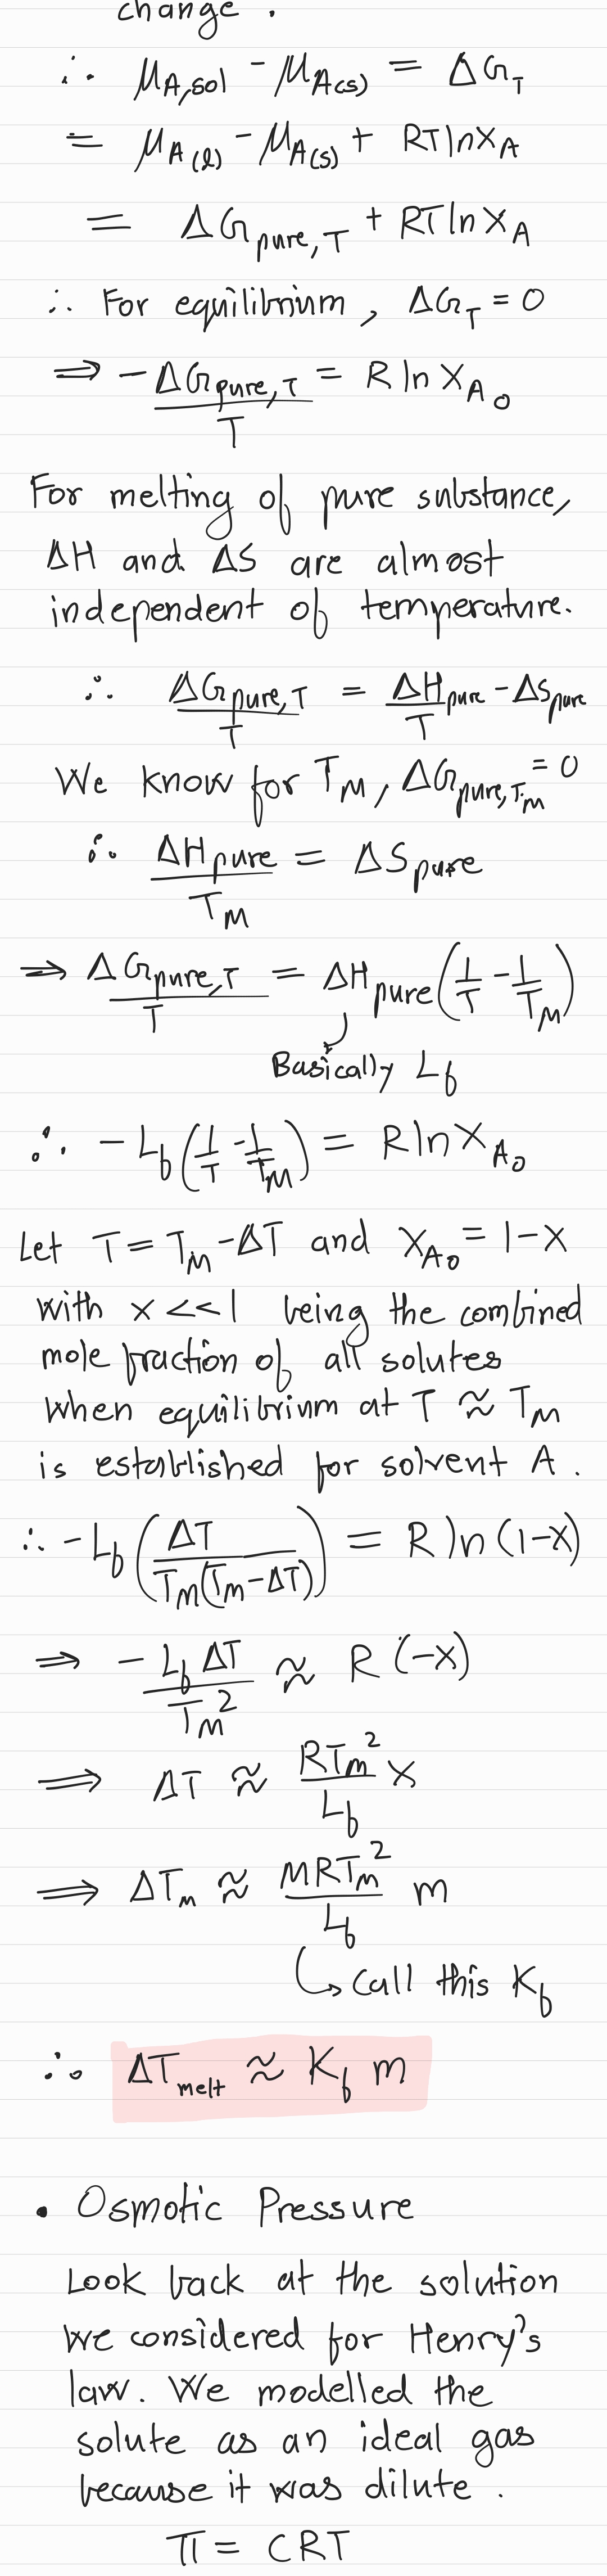 change.
∴ μ_{A,sol} - μ_{A(s)} = ΔG_T
= μ_{A(l)} - μ_{A(s)} + RT ln x_A
= ΔG_{pure,T} + RT ln x_A
∴ For equilibrium, ΔG_T = 0
⇒ -ΔG_{pure,T}/T = R ln x_{A_0}
For melting of pure substance,
ΔH and ΔS are almost
independent of temperature.
∴ ΔG_{pure,T}/T = ΔH_{pure}/T - ΔS_{pure}
We know for T_M, ΔG_{pure,T_m} = 0
∴ ΔH_{pure}/T_M = ΔS_{pure}
⇒ ΔG_{pure,T}/T = ΔH_{pure}(1/T - 1/T_M)
Basically L_f
∴ -L_f(1/T - 1/T_M) = R ln x_{A_0}
Let T = T_m - ΔT and x_{A_0} = 1-x
with x << 1 being the combined
mole fraction of all solutes
when equilibrium at T ≈ T_m
is established for solvent A.
∴ -L_f(ΔT/T_m(T_m - ΔT)) = R ln(1-x)
⇒ -L_f ΔT/T_m² ≈ R(-x)
⇒ ΔT ≈ RT_m²/L_f x
⇒ ΔT_m ≈ MRT_m²/L_f m
↳ Call this K_f
∴ ΔT_{melt} ≈ K_f m
• Osmotic Pressure
Look back at the solution
we considered for Henry's
law. We modelled the
solute as an ideal gas
because it was dilute.
π = CRT